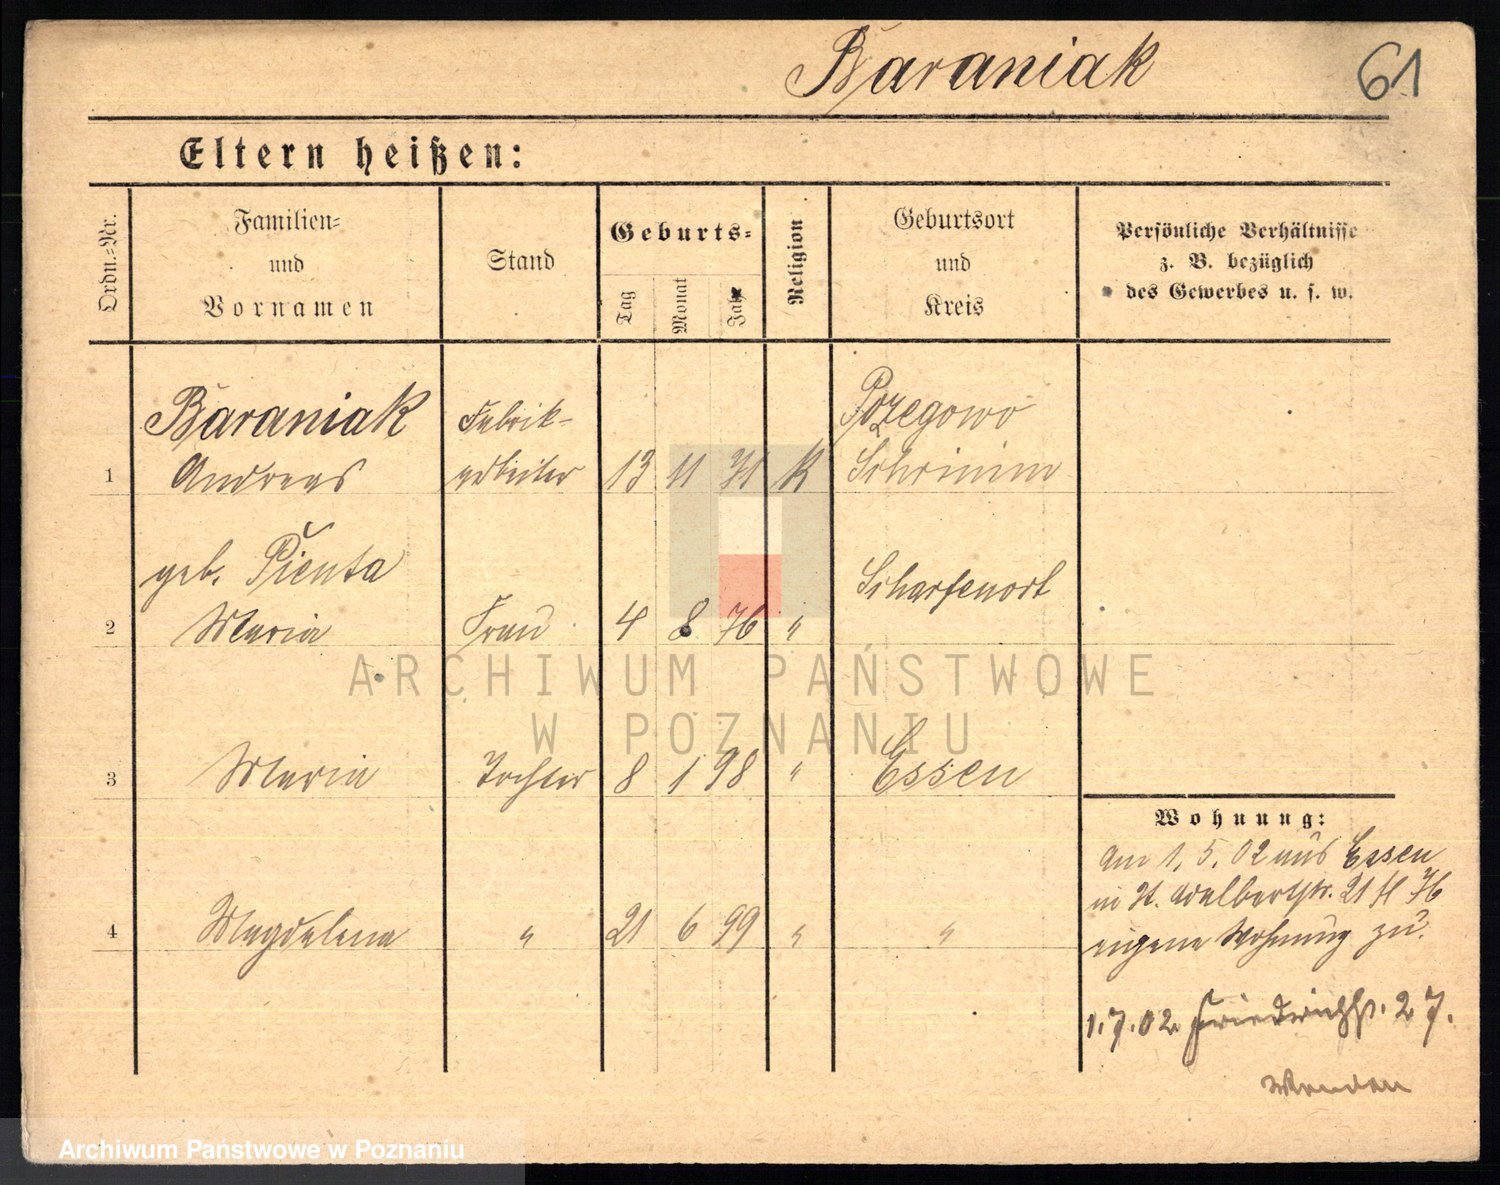 Baraniak 61
Eltern heißen:
Ordn.=Nr. Familien= und Vornamen Stand Geburts= Tag Monat Jahr Religion Geburtsort und Kreis Persönliche Verhältnisse z. B. bezüglich des Gewerbes u. s. w.
Baraniak Fabrik- Pozegowo
1 Andreas arbeiter 13 11 71 K Schrimm
geb. Pienta Scharfenort
2 Maria Frau 4 8 76 "
ARCHIWUM PAŃSTWOWE
W POZNANIU
3 Maria Tochter 8 1 98 " Essen
Wohnung:
Am 1. 5. 02 aus Essen
in St. Adalbertstr. 21 H 76
4 Magdalena " 21 6 99 " "
eigene Wohnung zu.
1.7.02 Friedrichstr. 27.
Wenden
Archiwum Państwowe w Poznaniu